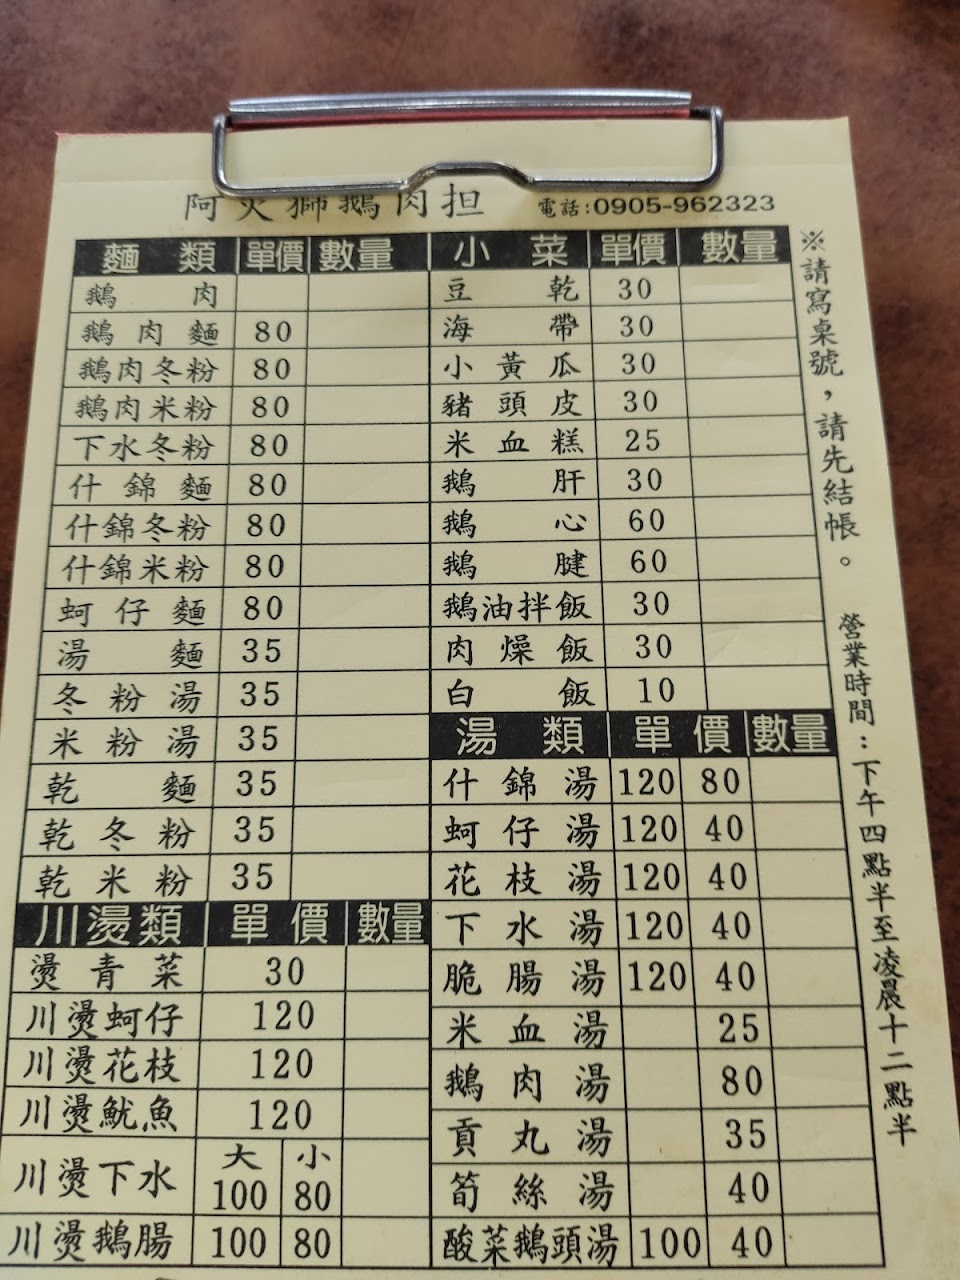 阿火獅鵝肉担 電話:0905-962323
麵類 單價 數量
鵝肉
鵝肉麵 80
鵝肉冬粉 80
鵝肉米粉 80
下水冬粉 80
什錦麵 80
什錦冬粉 80
什錦米粉 80
蚵仔麵 80
湯麵 35
冬粉湯 35
米粉湯 35
乾麵 35
乾冬粉 35
乾米粉 35
川燙類 單價 數量
燙青菜 30
川燙蚵仔 120
川燙花枝 120
川燙魷魚 120
川燙下水 大 100 小 80
川燙鵝腸 100 80
小菜 單價 數量
豆乾 30
海帶 30
小黃瓜 30
豬頭皮 30
米血糕 25
鵝肝 30
鵝心 60
鵝腱 60
鵝油拌飯 30
肉燥飯 30
白飯 10
湯類 單價 數量
什錦湯 120 80
蚵仔湯 120 40
花枝湯 120 40
下水湯 120 40
脆腸湯 120 40
米血湯 25
鵝肉湯 80
貢丸湯 35
筍絲湯 40
酸菜鵝頭湯 100 40
※請寫桌號,請先結帳。
營業時間:下午四點半至凌晨十二點半